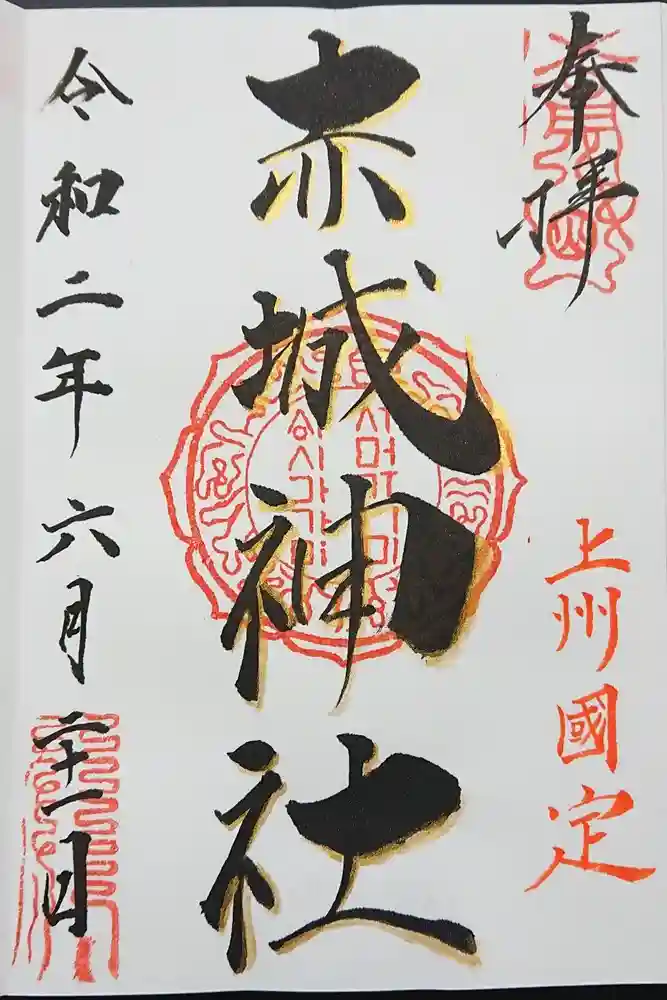 奉拝
上州國定
赤城神社
令和二年六月二十一日